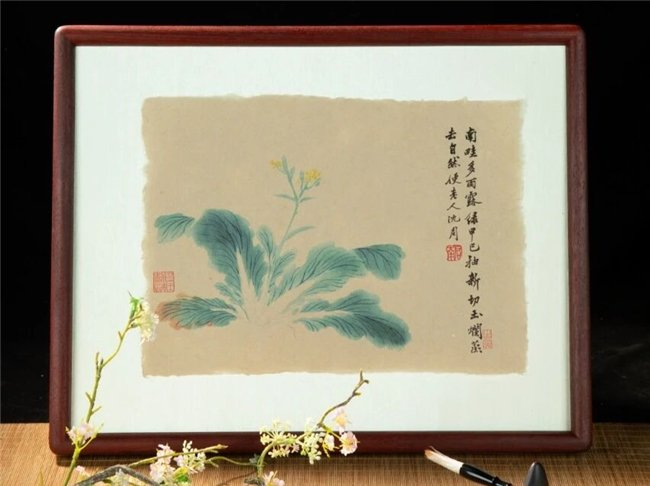 南畦多雨露綠甲已抽新切玉爛蒸
去自然便老人沈周